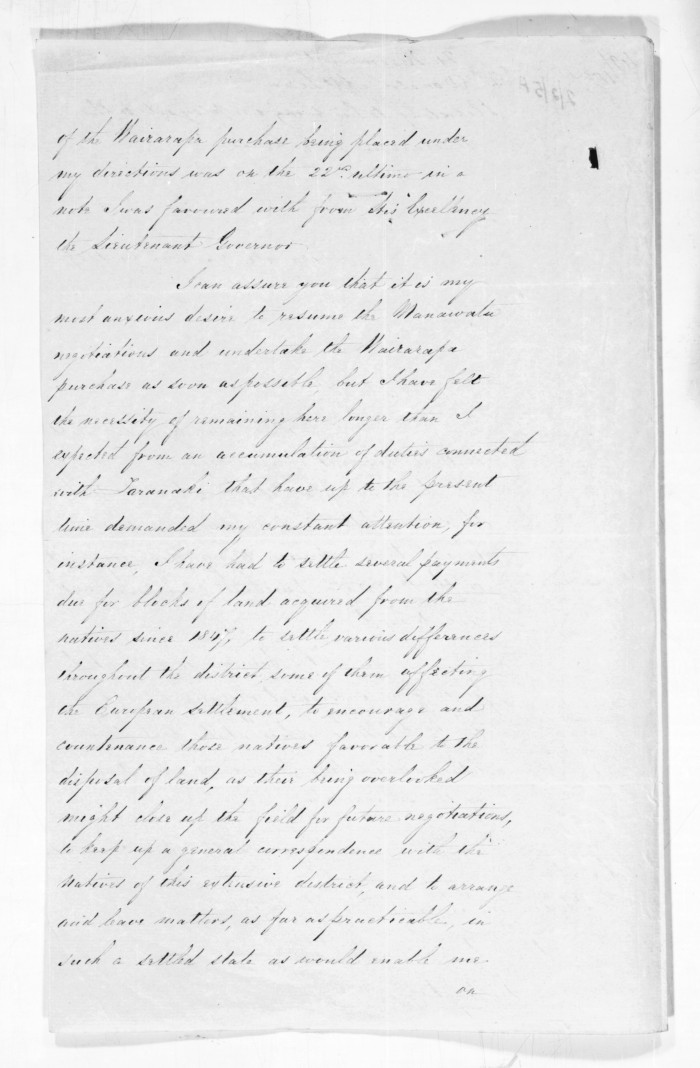 of the Wairarapa purchase being placed under
my directions was on the 22nd ultimo in a
note I was favoured with from His Excellency
the Lieutenant Governor
I can assure you that it is my
most anxious desire to resume the Manawatu
negotiations and undertake the Wairarapa
purchase as soon as possible, but I have felt
the necessity of remaining here longer than I
expected from an accumulation of duties connected
with Taranaki that have up to the present
time demanded my constant attention, for
instance, I have had to settle several payments
due for blocks of land acquired from the
natives since 1847, to settle various differences
throughout the district, some of them affecting
the European settlement, to encourage and
countenance those natives favorable to the
disposal of land, as their being overlooked
might close up the field for future negotiations,
to keep up a general correspondence with the
Natives of this extensive district, and to arrange
and leave matters, as far as practicable, in
such a settled state as would enable me
on